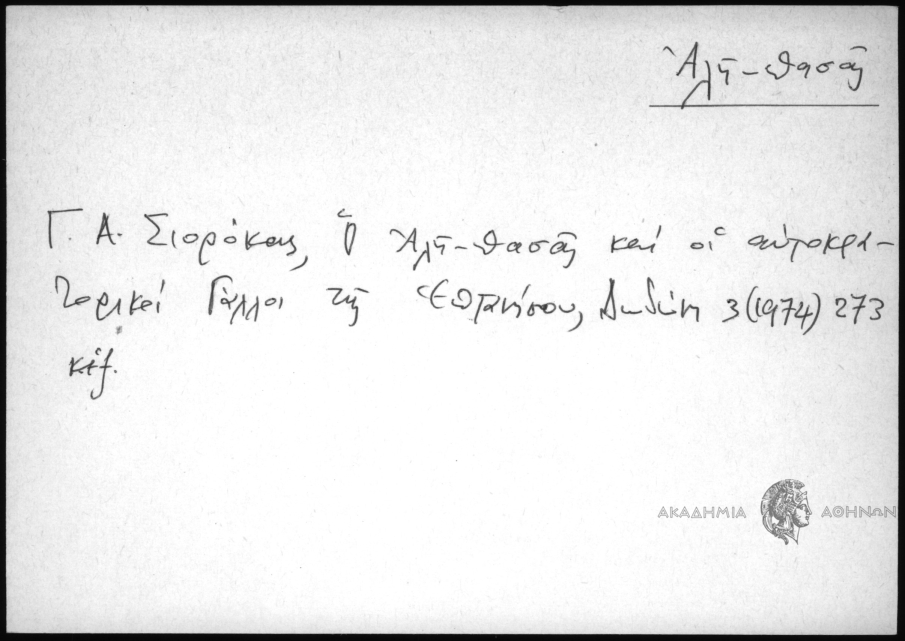 Ἀλῆ-πασᾶς
Γ. Α. Σιορόκας, Ὁ Ἀλῆ-πασᾶς καὶ οἱ αὐτοκρα-
τορικοὶ Γάλλοι τῆς Ἑπτανήσου, Δωδώνη 3 (1974) 273
κἑξ.
ΑΚΑΔΗΜΙΑ ΑΘΗΝΩΝ